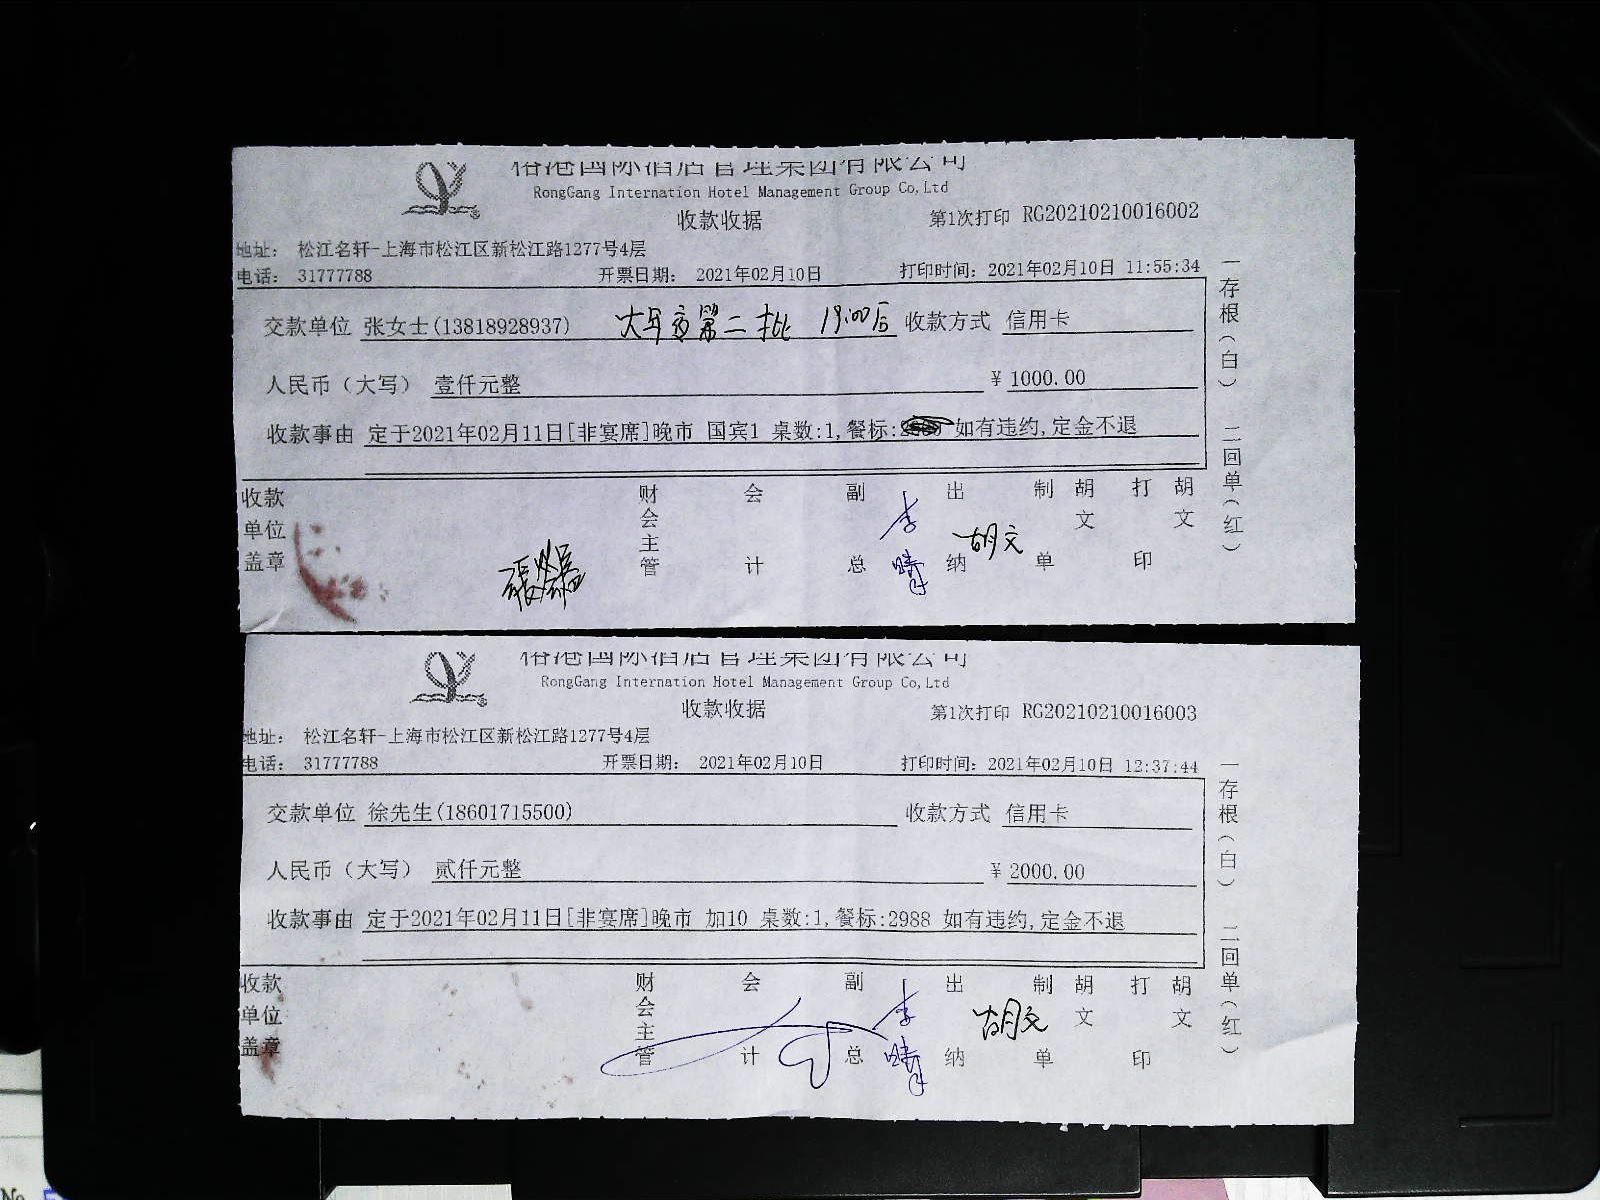 国际酒店管理集团有限公司
RongGang Internation Hotel Management Group Co,Ltd
收款收据
第1次打印 RG20210210016002
地址： 松江名轩-上海市松江区新松江路1277号4层
电话： 31777788 开票日期： 2021年02月10日 打印时间：2021年02月10日 11:55:34
交款单位 张女士(13818928937) 大年夜第二批 19:00后 收款方式 信用卡
人民币（大写） 壹仟元整 ¥ 1000.00
收款事由 定于2021年02月11日[非宴席]晚市 国宾1 桌数:1,餐标: 如有违约,定金不退
收款单位盖章 财会主管 会计 副总 李晴 出纳 胡文 制单 胡文 打印 胡文
一存根（白） 二回单（红）
国际酒店管理集团有限公司
RongGang Internation Hotel Management Group Co,Ltd
收款收据
第1次打印 RG20210210016003
地址： 松江名轩-上海市松江区新松江路1277号4层
电话： 31777788 开票日期： 2021年02月10日 打印时间：2021年02月10日 12:37:44
交款单位 徐先生(18601715500) 收款方式 信用卡
人民币（大写） 贰仟元整 ¥ 2000.00
收款事由 定于2021年02月11日[非宴席]晚市 加10 桌数:1,餐标:2988 如有违约,定金不退
收款单位盖章 财会主管 会计 副总 李晴 出纳 胡文 制单 胡文 打印 胡文
一存根（白） 二回单（红）
No